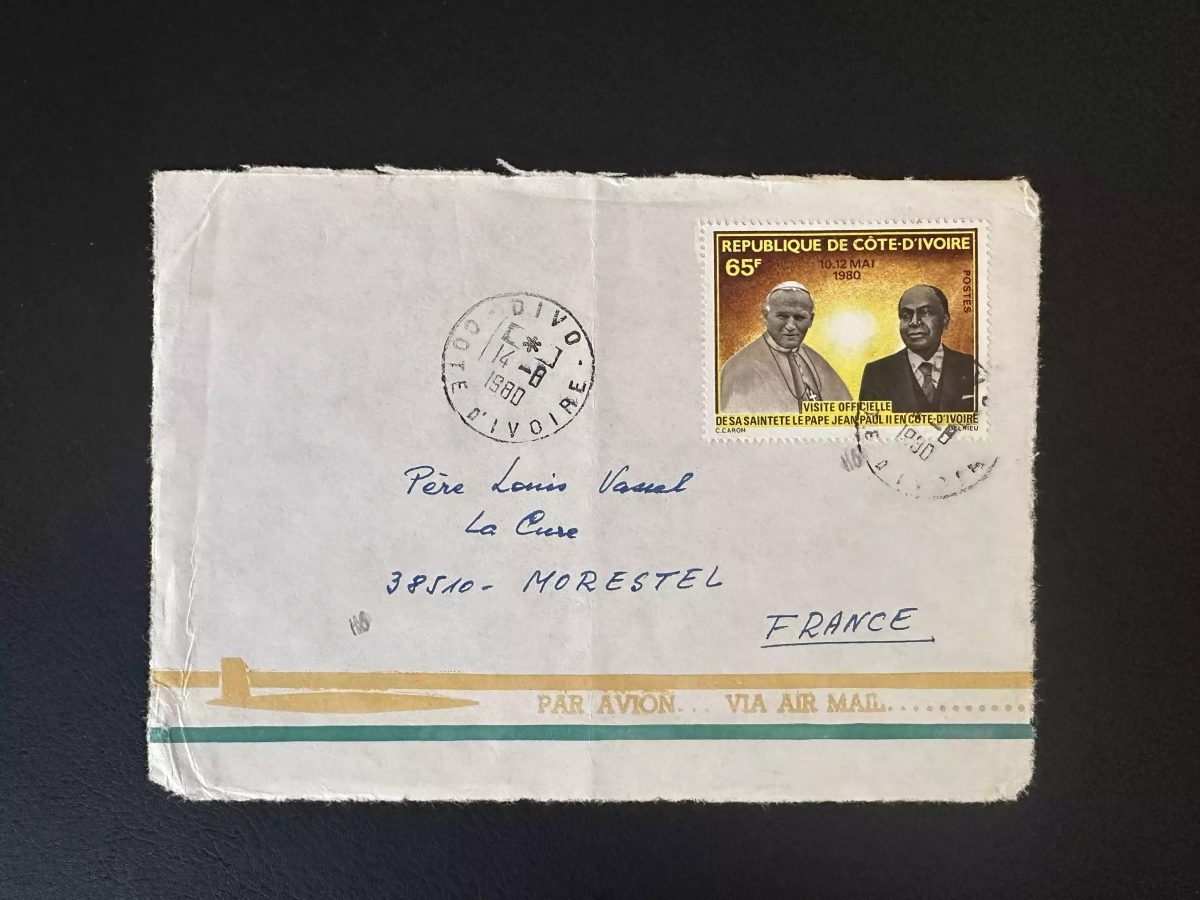 REPUBLIQUE DE CÔTE-D'IVOIRE
65F
10.12 MAI
1980
POSTES
VISITE OFFICIELLE
DE SA SAINTETE LE PAPE JEAN-PAUL II EN CÔTE-D'IVOIRE
C.CARON
DIVO
14 -8
1980
COTE D'IVOIRE
1980
Père Louis
La Cure
38510- MORESTEL
FRANCE
PAR AVION... VIA AIR MAIL